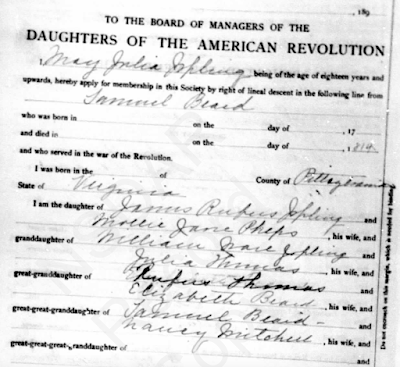 , 189
TO THE BOARD OF MANAGERS OF THE
DAUGHTERS OF THE AMERICAN REVOLUTION
May Julia Jopling being of the age of eighteen years and
upwards, hereby apply for membership in this Society by right of lineal descent in the following line from
Samuel Beard
who was born in on the day of , 17
and died in on the day of , 1819
and who served in the war of the Revolution.
I was born in the of County of Pittsylvania
State of Virginia
I am the daughter of James Rufus Jopling and
Mollie Jane Pheps , his wife, and
granddaughter of William Ware Jopling and
Julia Thomas , his wife, and
great-granddaughter of Rufus Thomas and
Elizabeth Beard , his wife, and
great-great-granddaughter of Samuel Beard and
Nancy Mitchell , his wife, and
great-great-great-granddaughter of and
Do not encroach on this margin, which is needed for binding.